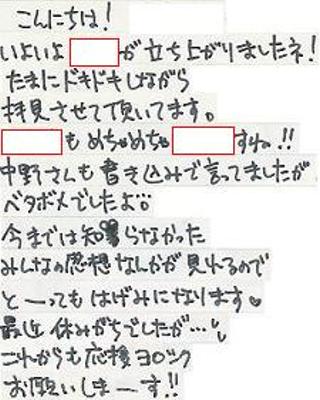 こんにちは!
いよいよ が立ち上がりましたネ!
たまにドキドキしながら
拝見させて頂いてます。
もめちゃめちゃ すね。!!
中野さんも書き込みで言ってましたが
ベタボメでしたよ
今までは知らなかった
みんなの感想なんかが見れるので
と一ってもはげみになります♥
最近休みがちでしたが…
これからも応援ヨロシク
お願いしまーす!!